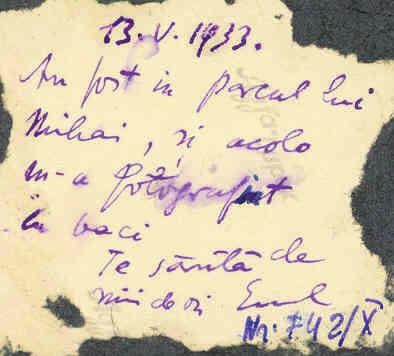 13.V.1933.
Am fost in parcul lui
Mihai, și acolo
m-a fotografiat
un baci
Te sărută de
mii de ori Emil
Nr. 742/X